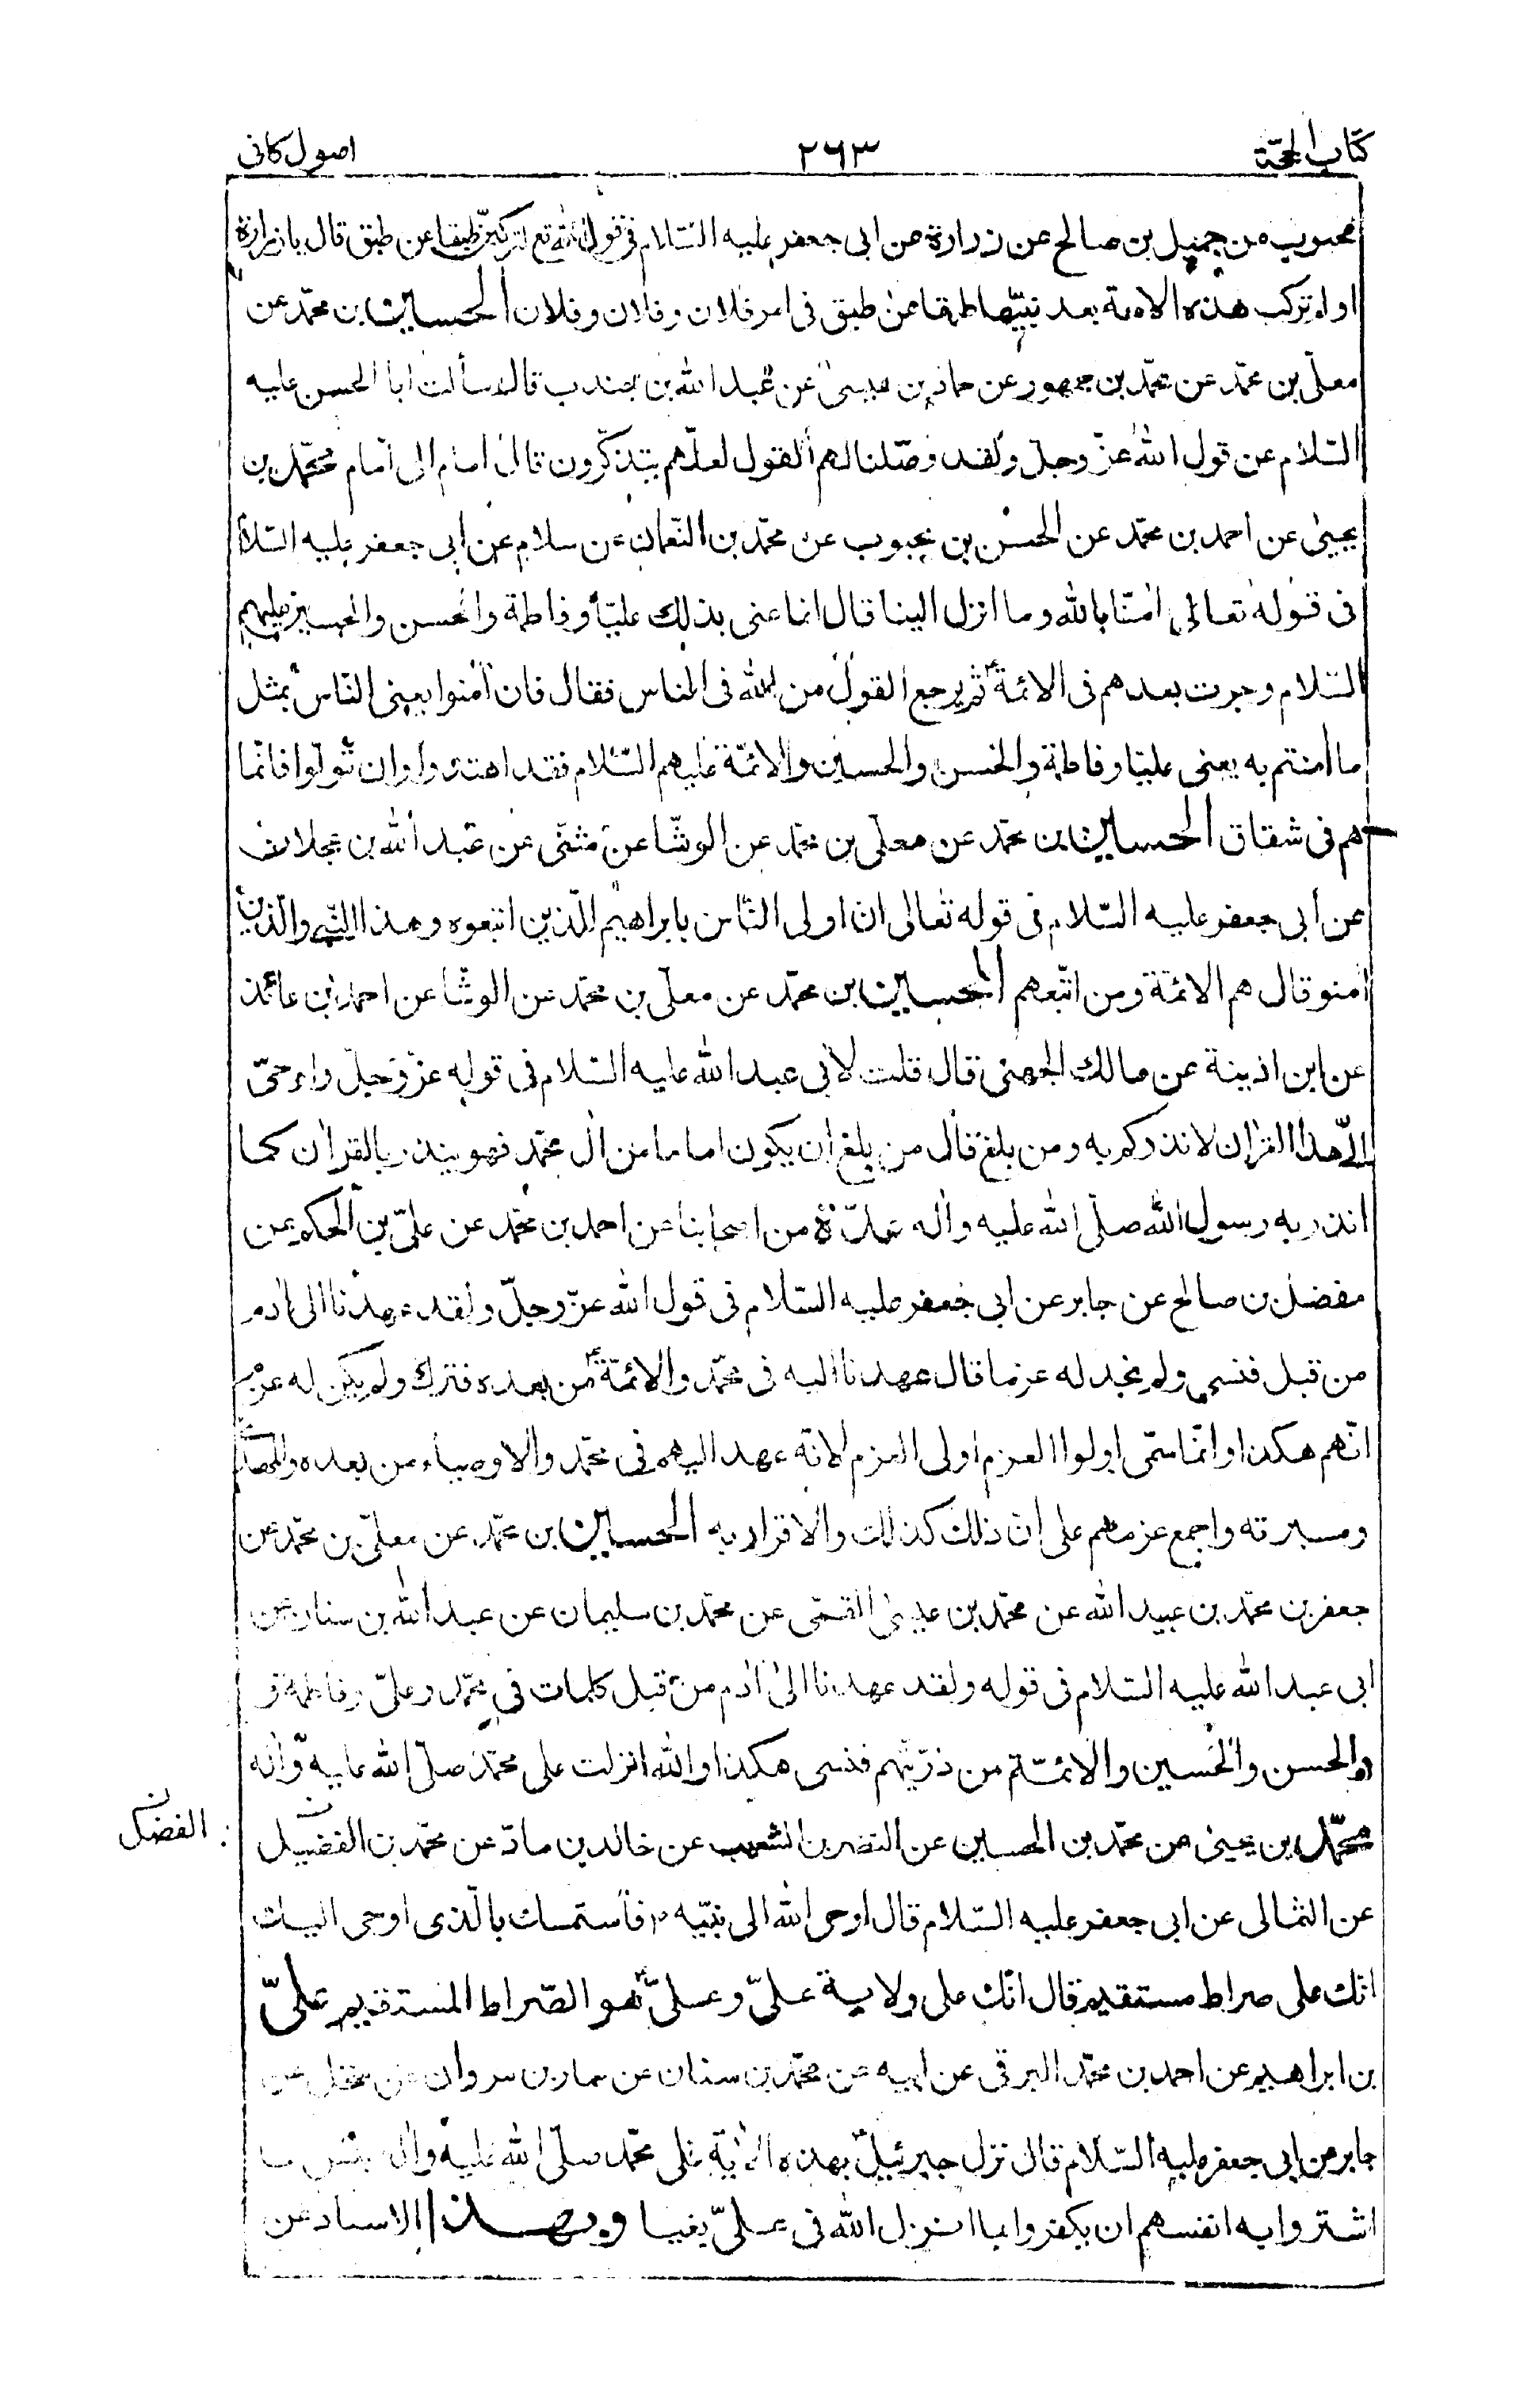 كتاب الحجّة ٢٦٣ اصول كافى
محبوب عن جميل بن صالح عن زرارة عن ابى جعفر عليه السّلام فى قول الله تع لتركبنّ طبقا عن طبق قال يا زرارة
اولم تركب هذه الامة بعد نبيّها طبقا عن طبق فى امر فلان وفلان وفلان الحسين بن محمّد عن
معلّى بن محمّد عن محمّد بن جمهور عن حماد بن عيسى عن عبد الله بن جندب قال سألت ابا الحسن عليه
السّلام عن قول الله عزّ وجلّ ولقد وصّلنا لهم القول لعلّهم يتذكّرون قال امام الى امام محمّد بن
يحيى عن احمد بن محمّد عن الحسن بن محبوب عن محمّد بن النّعمان عن سلام عن ابى جعفر عليه السّلا
فى قوله تعالى امنّا بالله وما انزل الينا قال انما عنى بذلك عليّا وفاطمة والحسن والحسين عليهم
السّلام وجرت بعدهم فى الائمةع ثم يرجع القول من الله فى الناس فقال فان آمنوا يعنى النّاس بمثل
ما آمنتم به يعنى عليّا وفاطمة والحسن والحسين والائمّة عليهم السّلام فقد اهتدوا وان تولّوا فانّما
هم فى شقاق الحسين بن محمّد عن معلّى بن محمّد عن الوشّا عن مثنّى عن عبد الله بن عجلان
عن ابى جعفر عليه السّلام فى قوله تعالى ان اولى النّاس بابراهيم للّذين اتبعوه وهذا النّبى والّذين
امنو قال هم الائمّة ومن اتّبعهم الحسين بن محمّد عن معلّى بن محمّد عن الوشّا عن احمد بن عائذ
عن ابن اذينة عن مالك الجهنى قال قلت لابى عبد الله عليه السّلام فى قوله عزّ وجلّ واوحى
الىّ هذا القرآن لانذركم به ومن بلغ قال من بلغ ان يكون اماما من ال محمّد فهو ينذر بالقرآن كما
انذر به رسول الله صلّى الله عليه واله عدّة من اصحابنا عن احمد بن محمّد عن علىّ بن الحكم عن
مفضل بن صالح عن جابر عن ابى جعفر عليه السّلام فى قول الله عزّ وجلّ ولقد عهدنا الى ادم
من قبل فنسى ولم نجد له عزما قال عهدنا اليه فى محمّد والائمّةع من بعده فترك ولم يكن له عزم
انّهم هكذا وانّما سمّى اولوا العزم اولى العزم لانّه عهد اليهم فى محمّد والاوصياء من بعده والمهدىّ
وسيرته واجمع عزمهم على ان ذلك كذلك والاقرار به الحسين بن محمّد عن معلّى بن محمّد عن
جعفر بن محمّد بن عبيد الله عن محمّد بن عيسى القمّى عن محمّد بن سليمان عن عبد الله بن سنان عن
ابى عبد الله عليه السّلام فى قوله ولقد عهدنا الى ادم من قبل كلمات فى محمّد وعلىّ وفاطمة و
والحسن والحسين والائمّة من ذرّيّتهم فنسى هكذا والله انزلت على محمّد صلّى الله عليه واله
محمّد بن يحيى عن محمّد بن الحسين عن النضر بن شعيب عن خالد بن مادّ عن محمّد بن الفضيل
الفضل ن
عن الثمالى عن ابى جعفر عليه السّلام قال اوحى الله الى نبيّه ص فاستمسك بالّذى اوحى اليك
انّك على صراط مستقيم قال انّك على ولاية علىّ وعلىّع هو الصّراط المستقيم علىّ
بن ابراهيم عن احمد بن محمّد البرقى عن ابيه عن محمّد بن سنان عن عمار بن مروان عن منخل عن
جابر عن ابى جعفر عليه السّلام قال نزل جبرئيلع بهذه الآية على محمّد صلّى الله عليه واله بئس ما
اشتروا به انفسهم ان يكفروا بما انزل الله فى علىّ بغيا وبهذا الاسناد عن